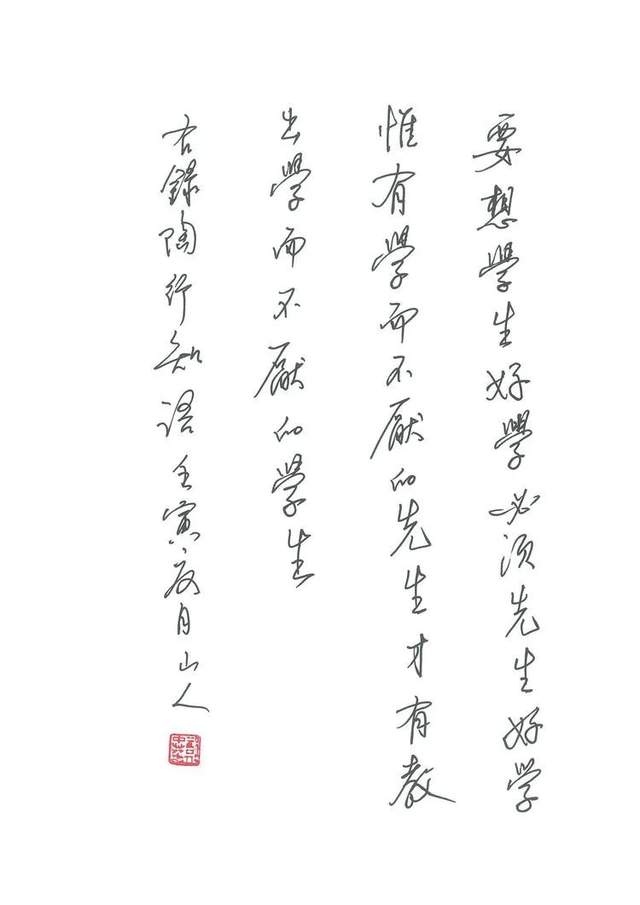 要想學生好學必须先生好学
惟有學而不厭的先生才有教
出學而不厭的學生
右錄陶行知语壬寅夏月山人